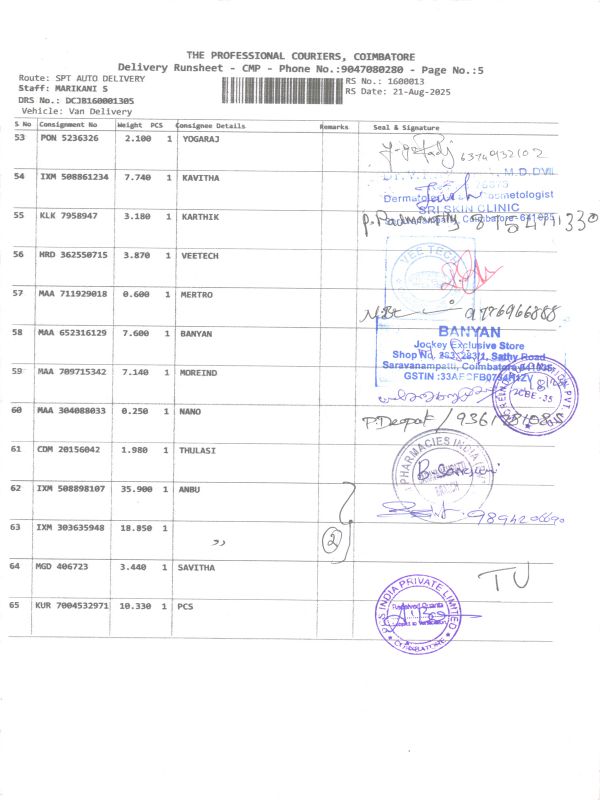 THE PROFESSIONAL COURIERS, COIMBATORE
Delivery Runsheet - CMP - Phone No.:9047080280 - Page No.:5
Route: SPT AUTO DELIVERY
RS No.: 1600013
Staff: MARIKANI S
RS Date: 21-Aug-2025
DRS No.: DCJB160001305
Vehicle: Van Delivery
S No Consignment No Weight PCS Consignee Details Remarks Seal & Signature
53 PON 5236326 2.100 1 YOGARAJ 6374932102
54 IXM 508861234 7.740 1 KAVITHA
M.D.DVL
Dermatologist Cosmetologist
SRI SKIN CLINIC
Coimbatore-641035
55 KLK 7958947 3.180 1 KARTHIK
56 HRD 362550715 3.870 1 VEETECH
VEE TECH
57 MAA 711929018 0.600 1 MERTRO 9776966888
58 MAA 652316129 7.600 1 BANYAN
BANYAN
Jockey Exclusive Store
Shop No. 283/1, Sathy Road
Saravanampatti, Coimbatore-641035
59 MAA 709715342 7.140 1 MOREIND
CBE-35
60 MAA 304088033 0.250 1 NANO P. Deepak /
61 CDM 20156042 1.980 1 THULASI
PHARMACIES INDIA
62 IXM 508898107 35.900 1 ANBU
63 IXM 303635948 18.850 1 ,, 2
64 MGD 406723 3.440 1 SAVITHA TU
65 KUR 7004532971 10.330 1 PCS
INDIA PRIVATE LIMITED
COIMBATORE